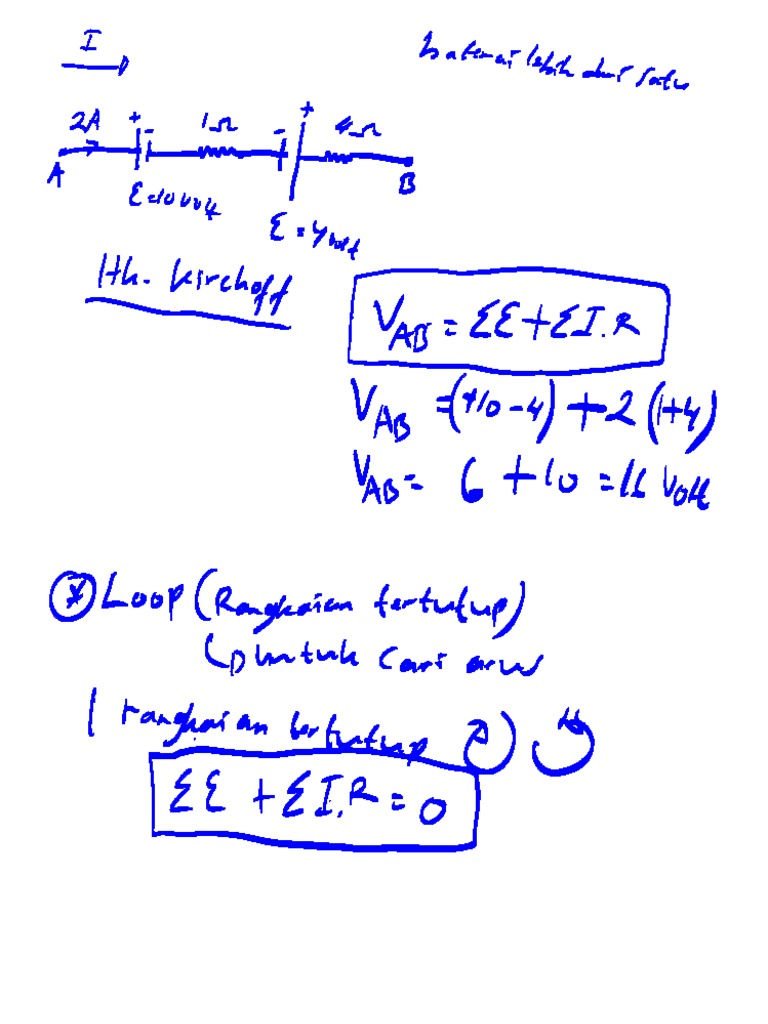 I
baterai lebih dari satu
2A + - 1Ω - + 4Ω
A B
Ɛ=10 volt
Ɛ = 4 volt
Hk. Kirchoff
V_AB = ΣƐ + ΣI.R
V_AB = (+10-4) + 2 (1+4)
V_AB = 6 + 10 = 16 Volt
* Loop (Rangkaian tertutup)
↳ untuk cari arus
1 rangkaian tertutup
ΣƐ + ΣI.R = 0